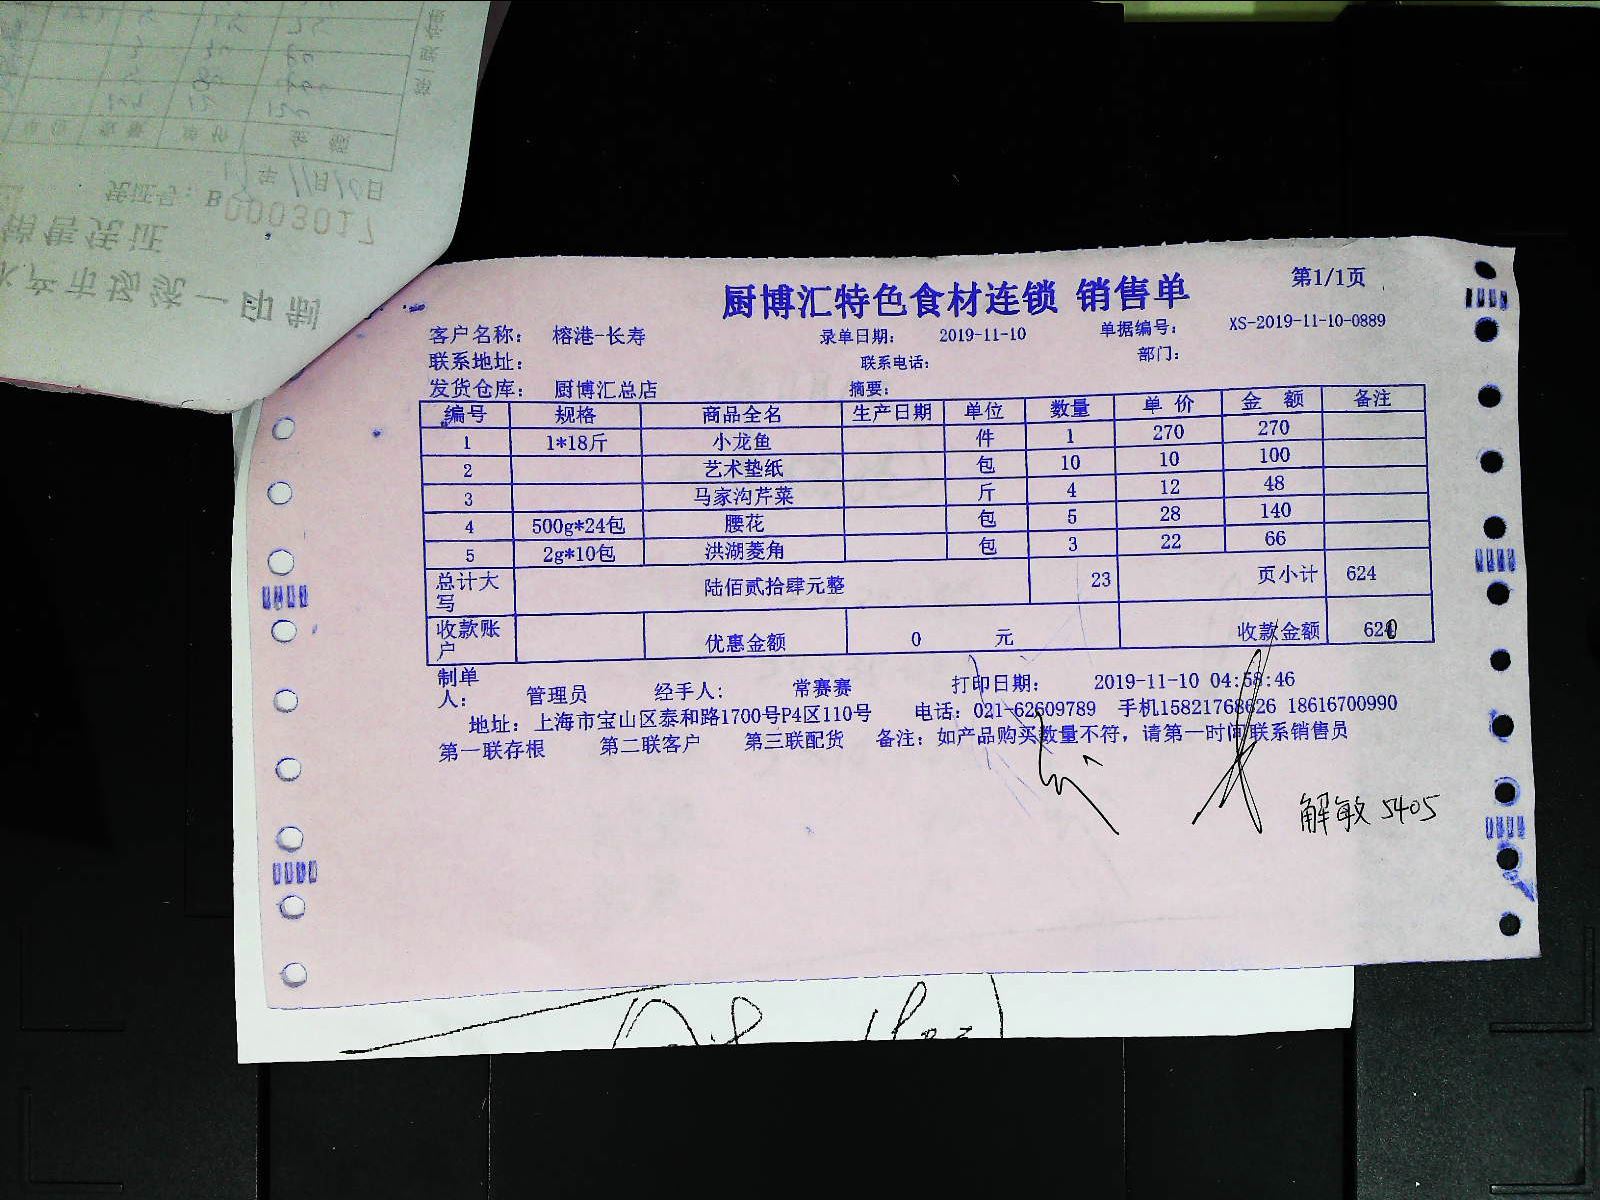 水产市场统一印制
销售凭证
凭证号：B0003017
年11月10日
厨博汇特色食材连锁 销售单 第1/1页
客户名称： 榕港-长寿 录单日期： 2019-11-10 单据编号： XS-2019-11-10-0889
联系地址： 联系电话： 部门：
发货仓库： 厨博汇总店 摘要：
编号 规格 商品全名 生产日期 单位 数量 单 价 金 额 备注
1 1*18斤 小龙鱼 件 1 270 270
2 艺术垫纸 包 10 10 100
3 马家沟芹菜 斤 4 12 48
4 500g*24包 腰花 包 5 28 140
5 2g*10包 洪湖菱角 包 3 22 66
总计大写 陆佰贰拾肆元整 23 页小计 624
收款账户 优惠金额 0 元 收款金额 620
制单人： 管理员 经手人： 常赛赛 打印日期： 2019-11-10 04:58:46
地址：上海市宝山区泰和路1700号P4区110号 电话：021-62609789 手机15821768626 18616700990
第一联存根 第二联客户 第三联配货 备注：如产品购买数量不符，请第一时间联系销售员
解敏 5405